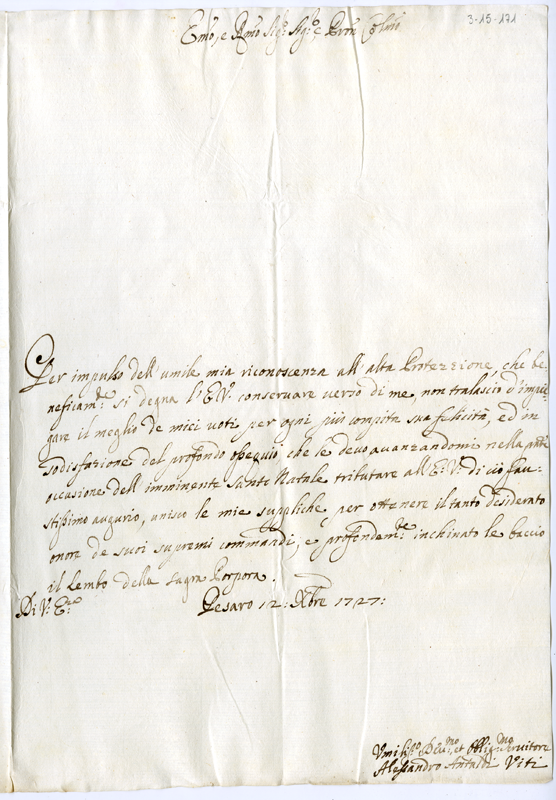 3-15-171
Emo, e Rmo Sig.r Sig.r e Pron Colmo
Per impulso dell'umile mia riconoscenza all'alta Protezzione, che be-
neficam.te si degna l'E.V. conservare verso di me, non tralascio d'impie-
gare il meglio de miei voti per ogni più compita sua felicità, ed in
sodisfazione del profondo ossequio che le devo avanzandomi nella pnte
occasione dell'imminente Santo Natale tributare all'E.V. di ciò fau-
stissimo augurio, unisco le mie suppliche per ottenere il tanto desiderato
onore de suoi supremi commandi, e profondem.te inchinato le baccio
il Lembo della sagra Porpora.
Di V: E:za Pesaro 12: Xbre 1727:
Vmiliss.o Dev.mo, et Obblig.mo Servitore
Alessandro Antaldi Viti